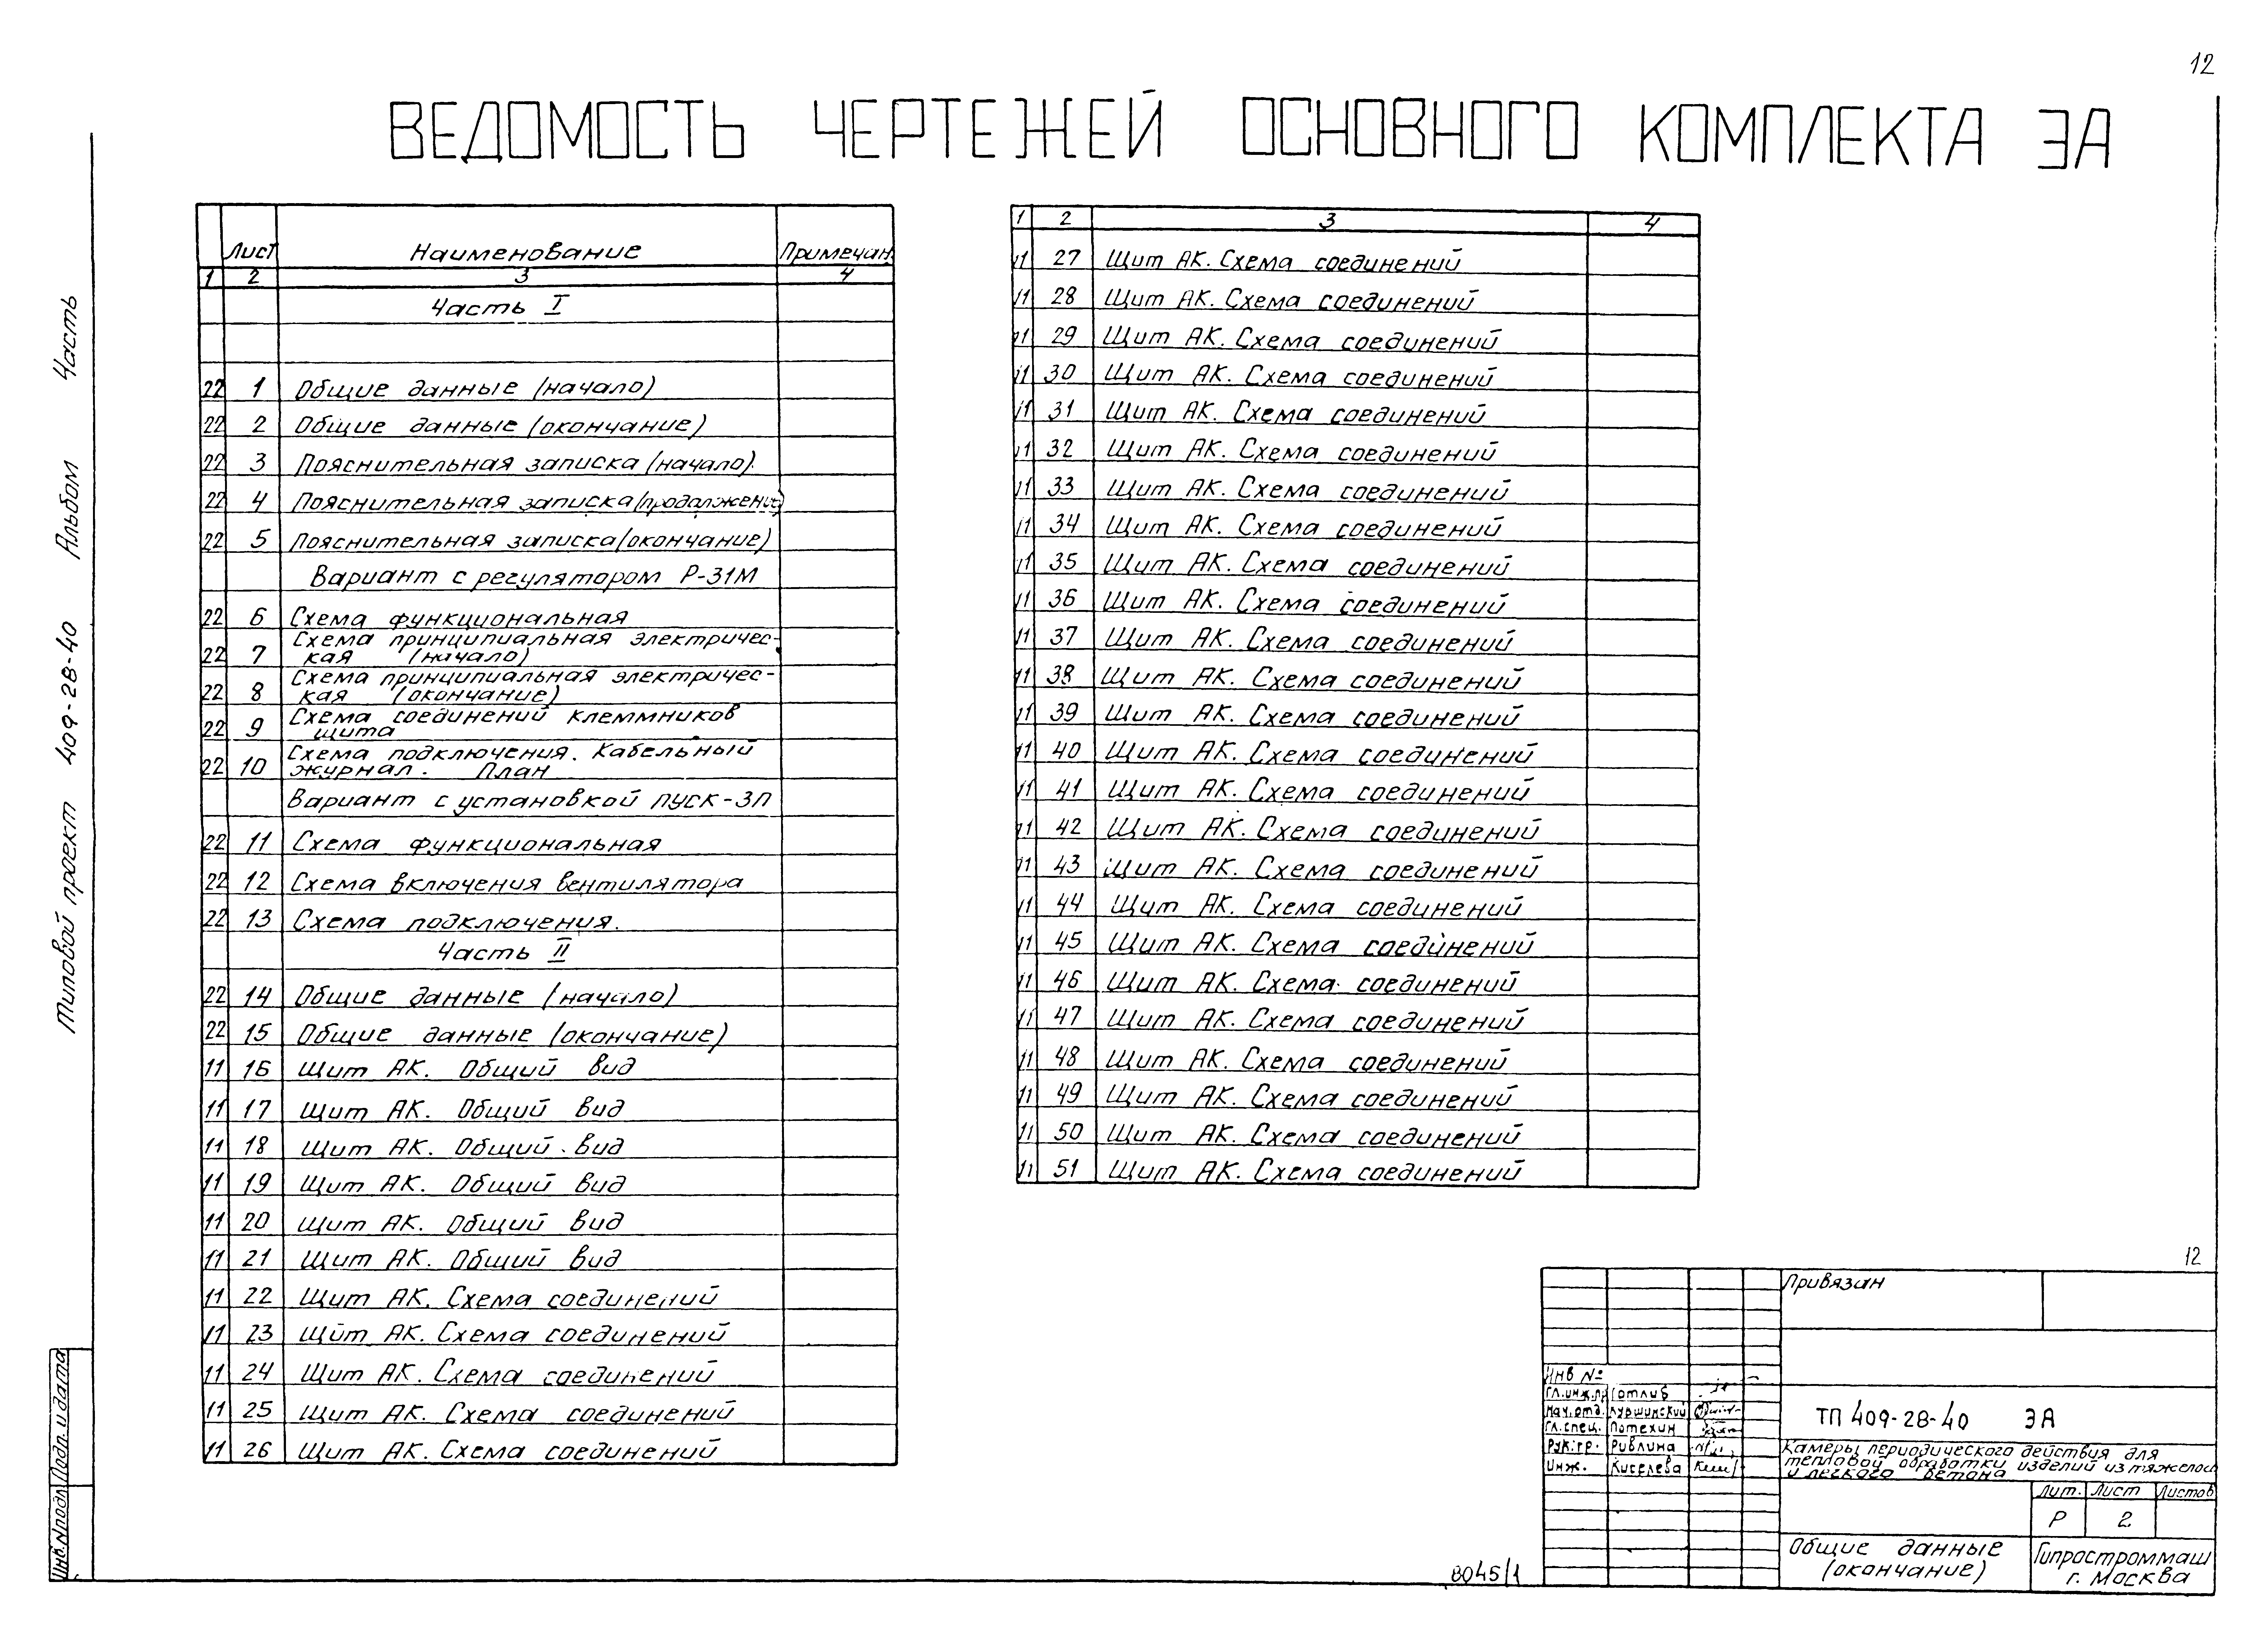 12
ВЕДОМОСТЬ ЧЕРТЕЖЕЙ ОСНОВНОГО КОМПЛЕКТА ЭА
Типовой проект 409-28-40 Альбом Часть
Лист Наименование Примечан.
1 2 3 4
Часть I
22 1 Общие данные (начало)
22 2 Общие данные (окончание)
22 3 Пояснительная записка (начало).
22 4 Пояснительная записка (продолжение)
22 5 Пояснительная записка (окончание)
Вариант с регулятором Р-31М
22 6 Схема функциональная
22 7 Схема принципиальная электричес-
кая (начало)
22 8 Схема принципиальная электричес-
кая (окончание)
22 9 Схема соединений клеммников
щита
22 10 Схема подключения. Кабельный
журнал. План
Вариант с установкой ПУСК-3П
22 11 Схема функциональная
22 12 Схема включения вентилятора
22 13 Схема подключения.
Часть II
22 14 Общие данные (начало)
22 15 Общие данные (окончание)
11 16 Щит АК. Общий вид
11 17 Щит АК. Общий вид
11 18 Щит АК. Общий вид
11 19 Щит АК. Общий вид
11 20 Щит АК. Общий вид
11 21 Щит АК. Общий вид
11 22 Щит АК. Схема соединений
11 23 Щит АК. Схема соединений
11 24 Щит АК. Схема соединений
11 25 Щит АК. Схема соединений
11 26 Щит АК. Схема соединений
1 2 3 4
11 27 Щит АК. Схема соединений
11 28 Щит АК. Схема соединений
11 29 Щит АК. Схема соединений
11 30 Щит АК. Схема соединений
11 31 Щит АК. Схема соединений
11 32 Щит АК. Схема соединений
11 33 Щит АК. Схема соединений
11 34 Щит АК. Схема соединений
11 35 Щит АК. Схема соединений
11 36 Щит АК. Схема соединений
11 37 Щит АК. Схема соединений
11 38 Щит АК. Схема соединений
11 39 Щит АК. Схема соединений
11 40 Щит АК. Схема соединений
11 41 Щит АК. Схема соединений
11 42 Щит АК. Схема соединений
11 43 Щит АК. Схема соединений
11 44 Щит АК. Схема соединений
11 45 Щит АК. Схема соединений
11 46 Щит АК. Схема соединений
11 47 Щит АК. Схема соединений
11 48 Щит АК. Схема соединений
11 49 Щит АК. Схема соединений
11 50 Щит АК. Схема соединений
11 51 Щит АК. Схема соединений
12
Привязан
Инв №
Гл.инж.пр. Готлиб
Нач.отд. Луршинский
Гл.спец. Потехин
Рук.гр. Ривлина
Инж. Киселева
ТП 409-28-40 ЭА
Камеры периодического действия для
тепловой обработки изделий из тяжелого
и легкого бетона
Лит. Лист Листов
Р 2
Общие данные
(окончание)
Гипростроммаш
г. Москва
Инв.№ подл Подп. и дата
8045/1